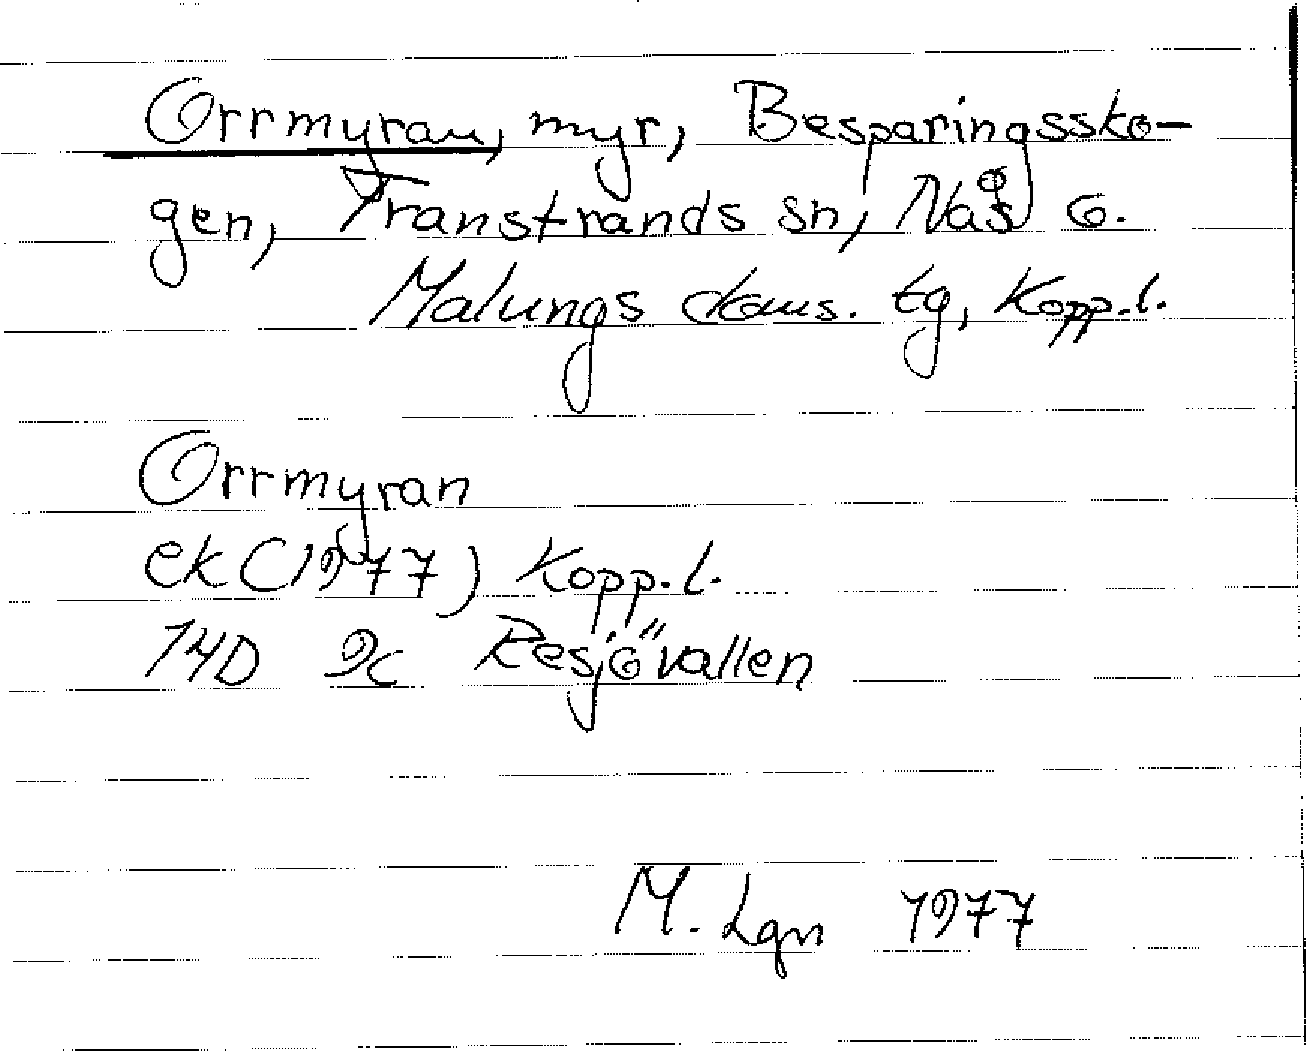 Orrmyran, myr, Besparingssko-
gen, Transtrands sn, Nås o.
Malungs doms. tg, Kopp.l.
Orrmyran
ek (1977) Kopp.l.
14D 9c Resjövallen
M. Lgn 1977